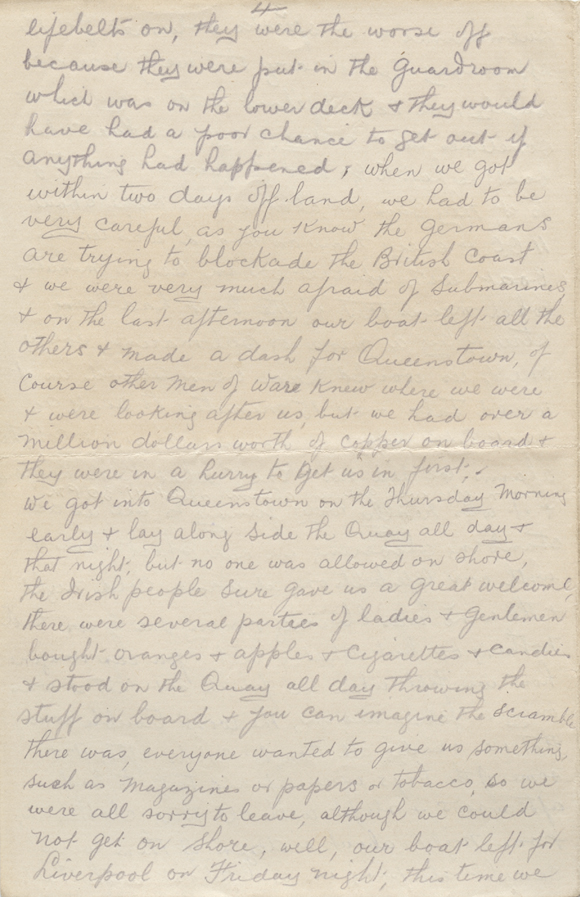 4
lifebelts on, they were the worse off
because they were put in the Guardroom
which was on the lower deck & they would
have had a poor chance to get out if
anything had happened, when we got
within two days off land, we had to be
very careful, as you know the Germans
are trying to blockade the British Coast
& we were very much afraid of Submarines
& on the last afternoon our boat left all the
others & made a dash for Queenstown, of
Course other Men of Ware knew where we were
& were looking after us, but we had over a
million dollars worth of copper on board &
they were in a hurry to get us in first,
we got into Queenstown on the Thursday Morning
early & lay along side the Quay all day &
that night, but no one was allowed on shore,
the Irish people sure gave us a great welcome,
there were several parties of ladies & Genlemen
bought oranges & apples & Cigarettes & Candies
& stood on the Quay all day throwing the
stuff on board & you can imagine the Scramble
there was, everyone wanted to give us something,
such as Magazines or papers or tobacco, so we
were all sorry to leave, although we could
not get on Shore, well, our boat left for
Liverpool on Friday night, this time we